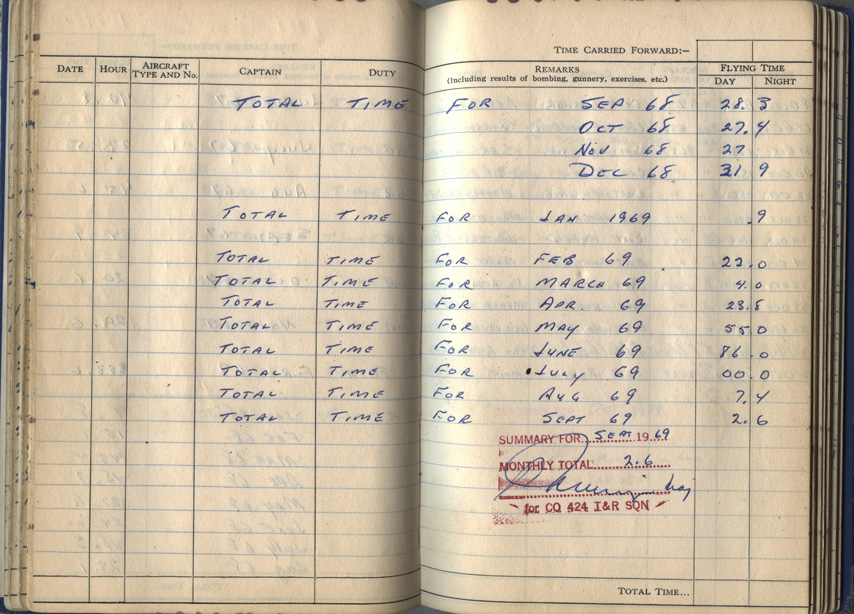 TIME CARRIED FORWARD:—
DATE HOUR AIRCRAFT TYPE AND No. CAPTAIN DUTY REMARKS (Including results of bombing, gunnery, exercises, etc.) FLYING TIME DAY NIGHT
TOTAL TIME FOR SEP 68 28.3
OCT 68 27.4
NOV 68 27
DEC 68 31 9
TOTAL TIME FOR JAN 1969 .9
TOTAL TIME FOR FEB 69 22.0
TOTAL TIME FOR MARCH 69 4.0
TOTAL TIME FOR APR. 69 23.8
TOTAL TIME FOR MAY 69 55.0
TOTAL TIME FOR JUNE 69 86.0
TOTAL TIME FOR JULY 69 00.0
TOTAL TIME FOR AUG 69 7.4
TOTAL TIME FOR SEPT 69 2.6
SUMMARY FOR SEPT 1969
MONTHLY TOTAL 2.6
Maj
for CO 424 T&R SQN
TOTAL TIME...